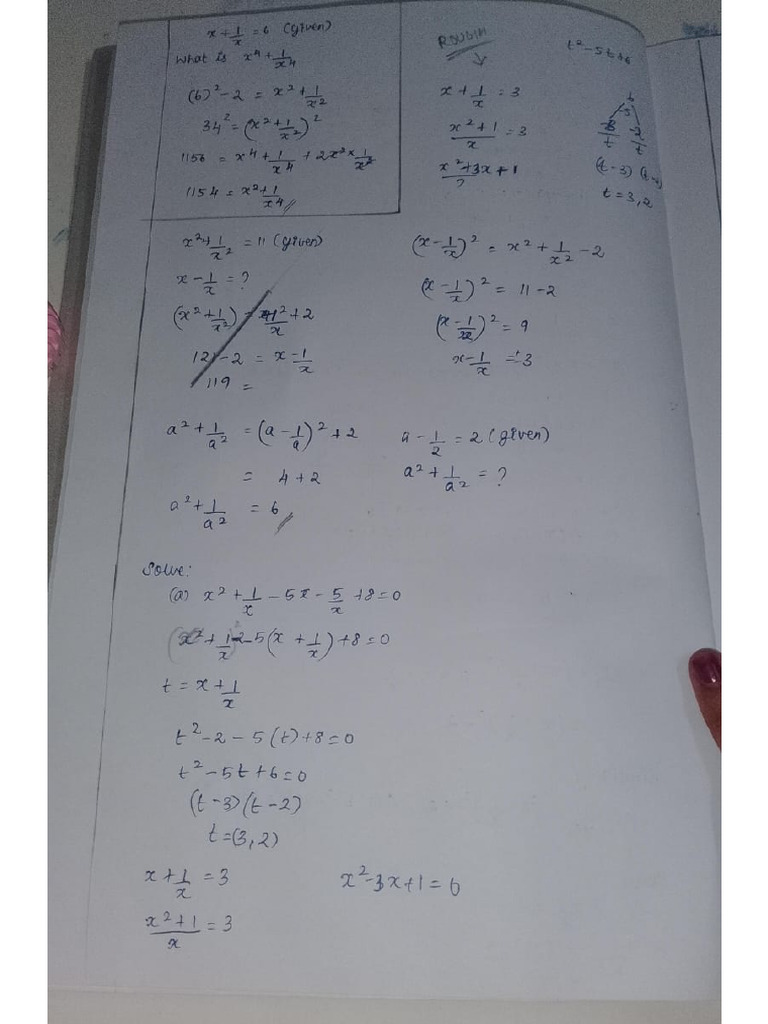 x + 1/x = 6 (given)
what is x⁴ + 1/x⁴
(6)² - 2 = x² + 1/x²
34² = (x² + 1/x²)²
1156 = x⁴ + 1/x⁴ + 2x² × 1/x²
1154 = x² + 1/x⁴
ROUGH
x + 1/x = 3
(x² + 1)/x = 3
t² - 5t + 6
6
-5
-3/t -2/t
t = 3, 2
x² + 1/x² = 11 (given)
x - 1/x = ?
121 - 2 = x - 1/x
119 =
(x - 1/x)² = x² + 1/x² - 2
(x - 1/x)² = 11 - 2
(x - 1/x)² = 9
x - 1/x = 3
a² + 1/a² = (a - 1/a)² + 2
= 4 + 2
a² + 1/a² = 6
a - 1/2 = 2 (given)
a² + 1/a² = ?
Solve:
(a) x² + 1/x - 5x - 5/x + 8 = 0
(x + 1/x)² - 2 - 5(x + 1/x) + 8 = 0
t = x + 1/x
t² - 2 - 5(t) + 8 = 0
t² - 5t + 6 = 0
(t - 3)(t - 2)
t = (3, 2)
x + 1/x = 3
(x² + 1)/x = 3
x² - 3x + 1 = 6